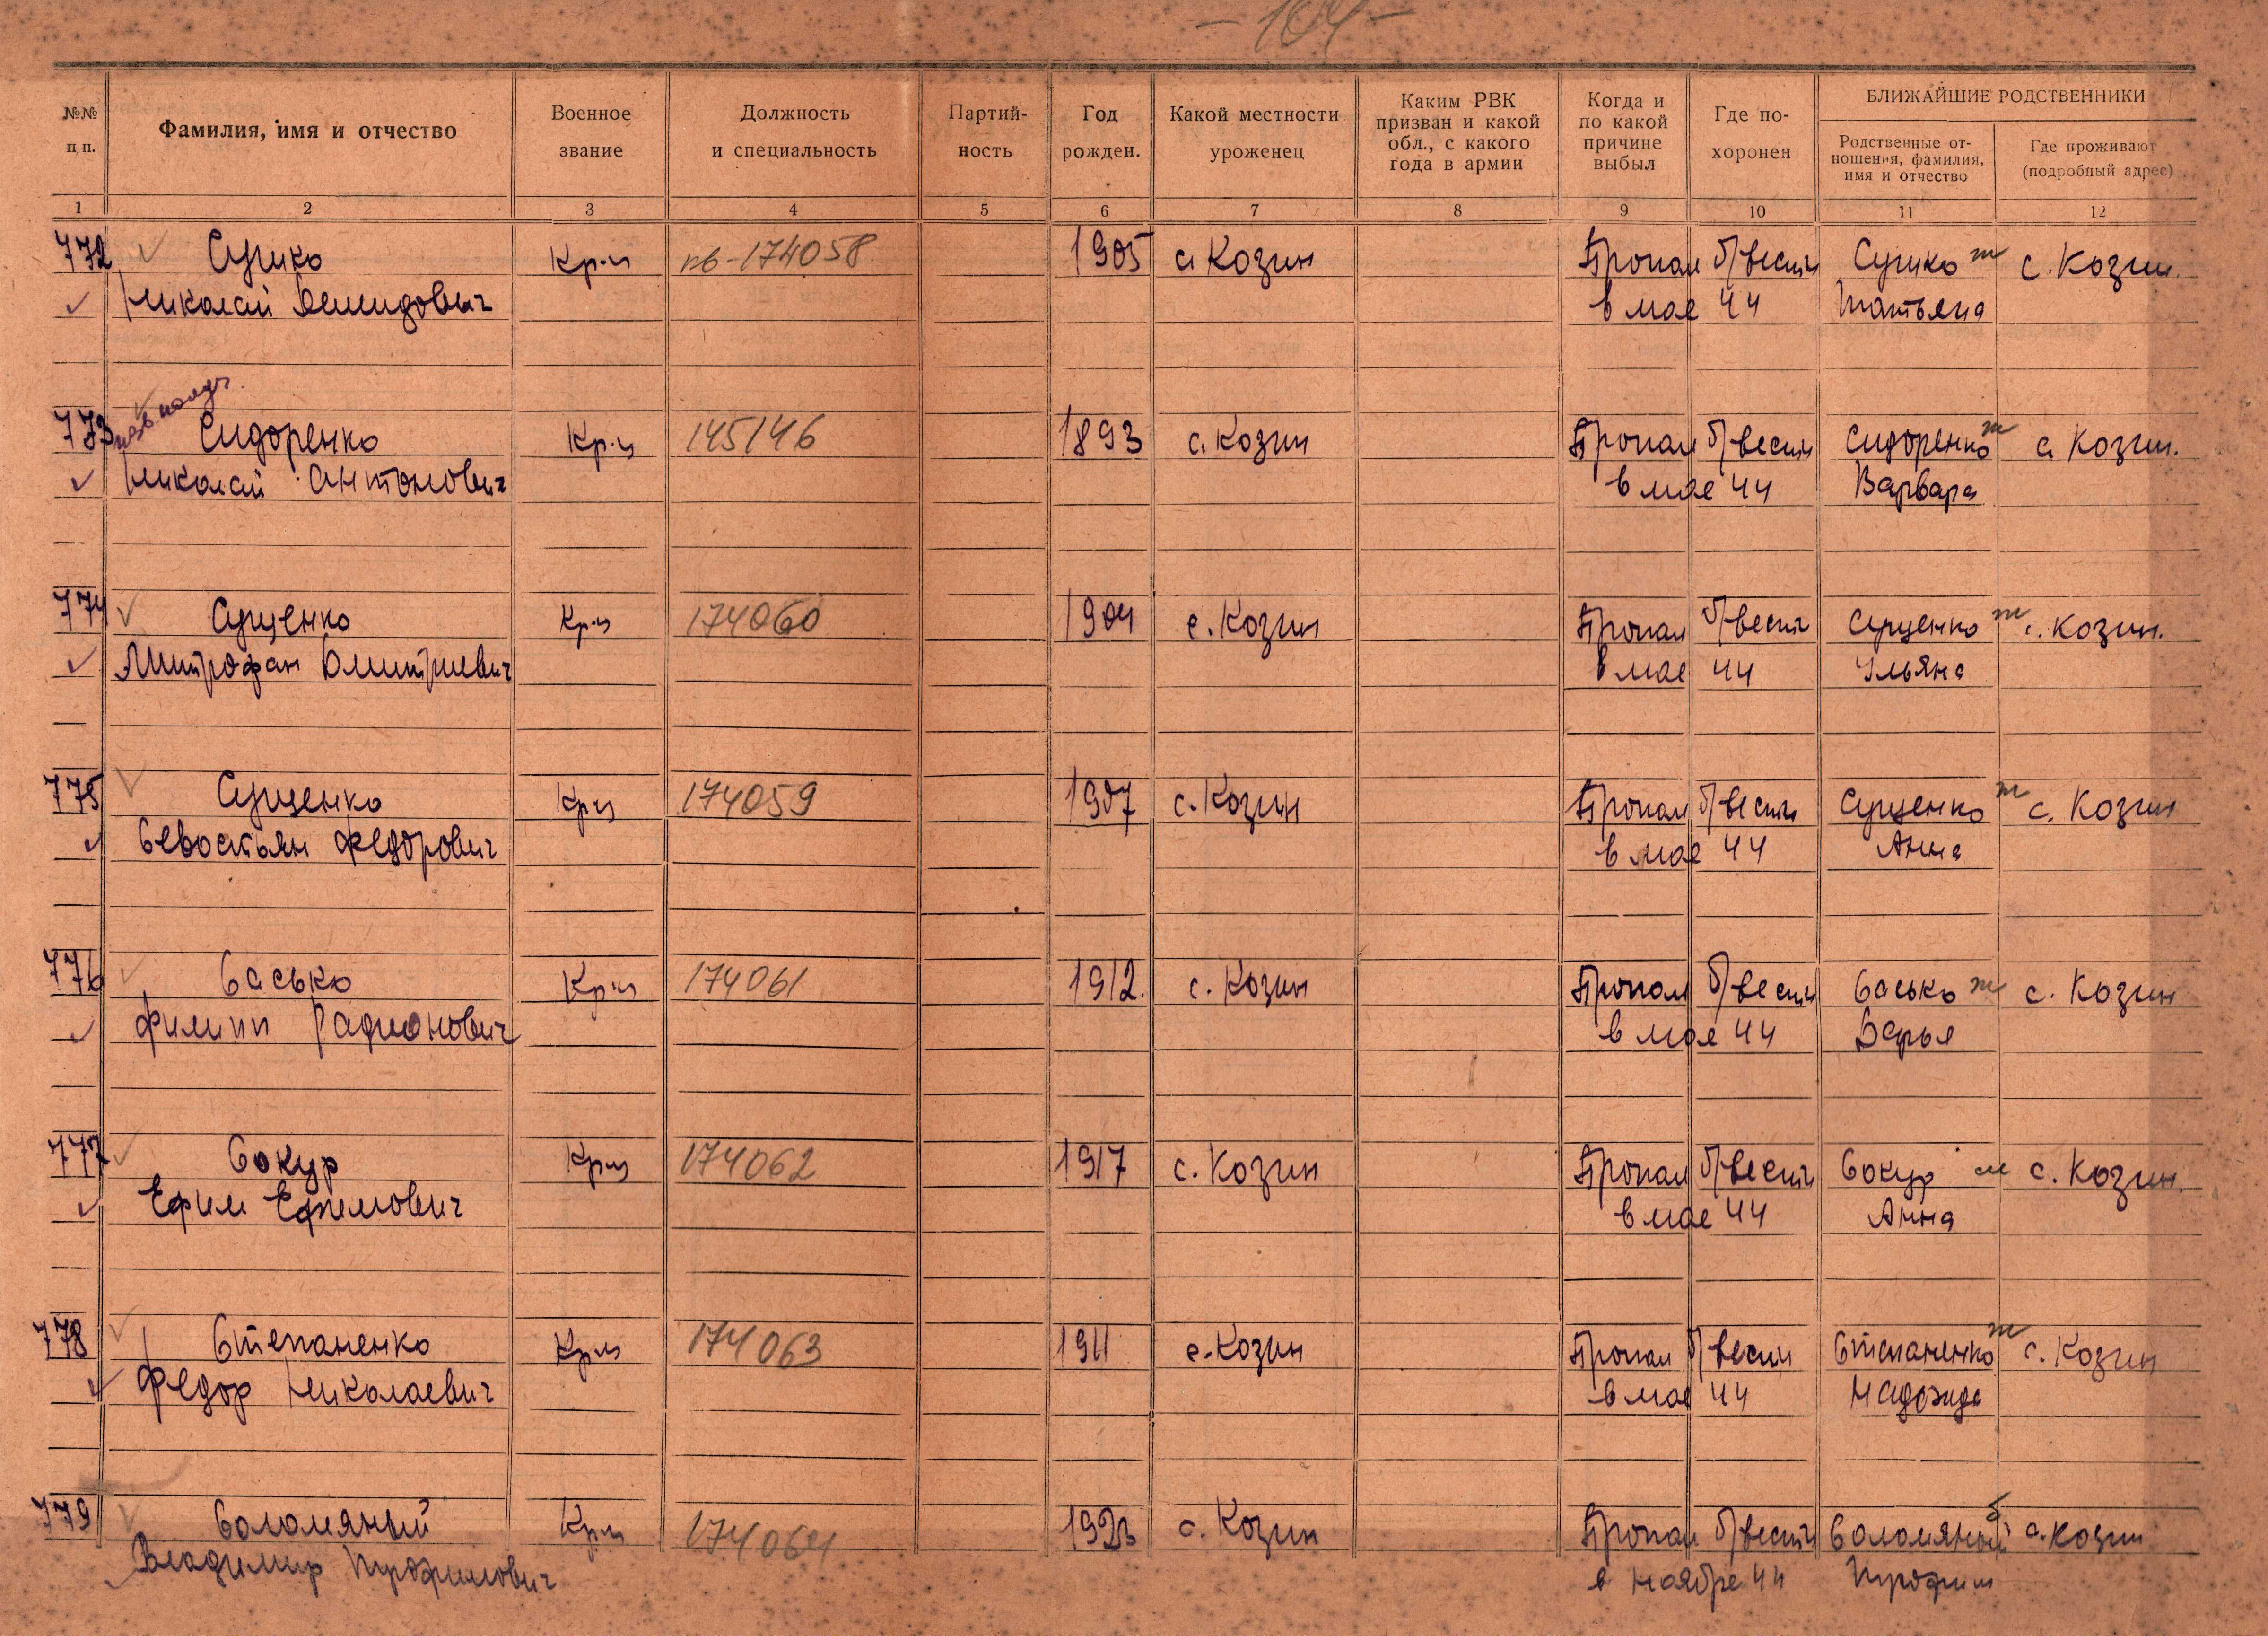 - 104 -
№№ п п.
Фамилия, имя и отчество
Военное звание
Должность и специальность
Партий-ность
Год рожден.
Какой местности уроженец
Каким РВК призван и какой обл., с какого года в армии
Когда и по какой причине выбыл
Где по-хоронен
БЛИЖАЙШИЕ РОДСТВЕННИКИ
Родственные от-ношения, фамилия, имя и отчество
Где проживают (подробный адрес)
1 2 3 4 5 6 7 8 9 10 11 12
772 Сушко Кр-ц пв-174058 1905 с. Козин Пропал б/вести Сушко ж с. Козин.
Николай Демидович в мае 44 Татьяна
изв. получ.
773 Сидоренко Кр-ц 145146 1893 с. Козин Пропал б/вести Сидоренко ж с. Козин.
Николай Антонович в мае 44 Варвара
774 Сущенко Кр-ц 174060 1904 с. Козин Пропал б/вести Сущенко ж с. Козин.
Митрофан Дмитриевич в мае 44 Ульяна
775 Сущенко Кр-ц 174059 1907 с. Козин Пропал б/вести Сущенко ж с. Козин
Севостьян Федорович в мае 44 Анна
776 Сасько Кр-ц 174061 1912. с. Козин Пропал б/вести Сасько ж с. Козин
Филипп Радионович в мае 44 Дарья
777 Сокур Кр-ц 174062 1917 с. Козин Пропал б/вести Сокур м с. Козин.
Ефим Ефимович в мае 44 Анна
778 Степаненко Кр-ц 174063 1911 с. Козин Пропал б/вести Степаненко ж с. Козин
Федор Николаевич в мае 44 Надежда
779 Соломяный Кр-ц 174064 с. Козин Пропал б/вести Соломяный с. Козин
Владимир Трофимович в ноябре 44 Трофим